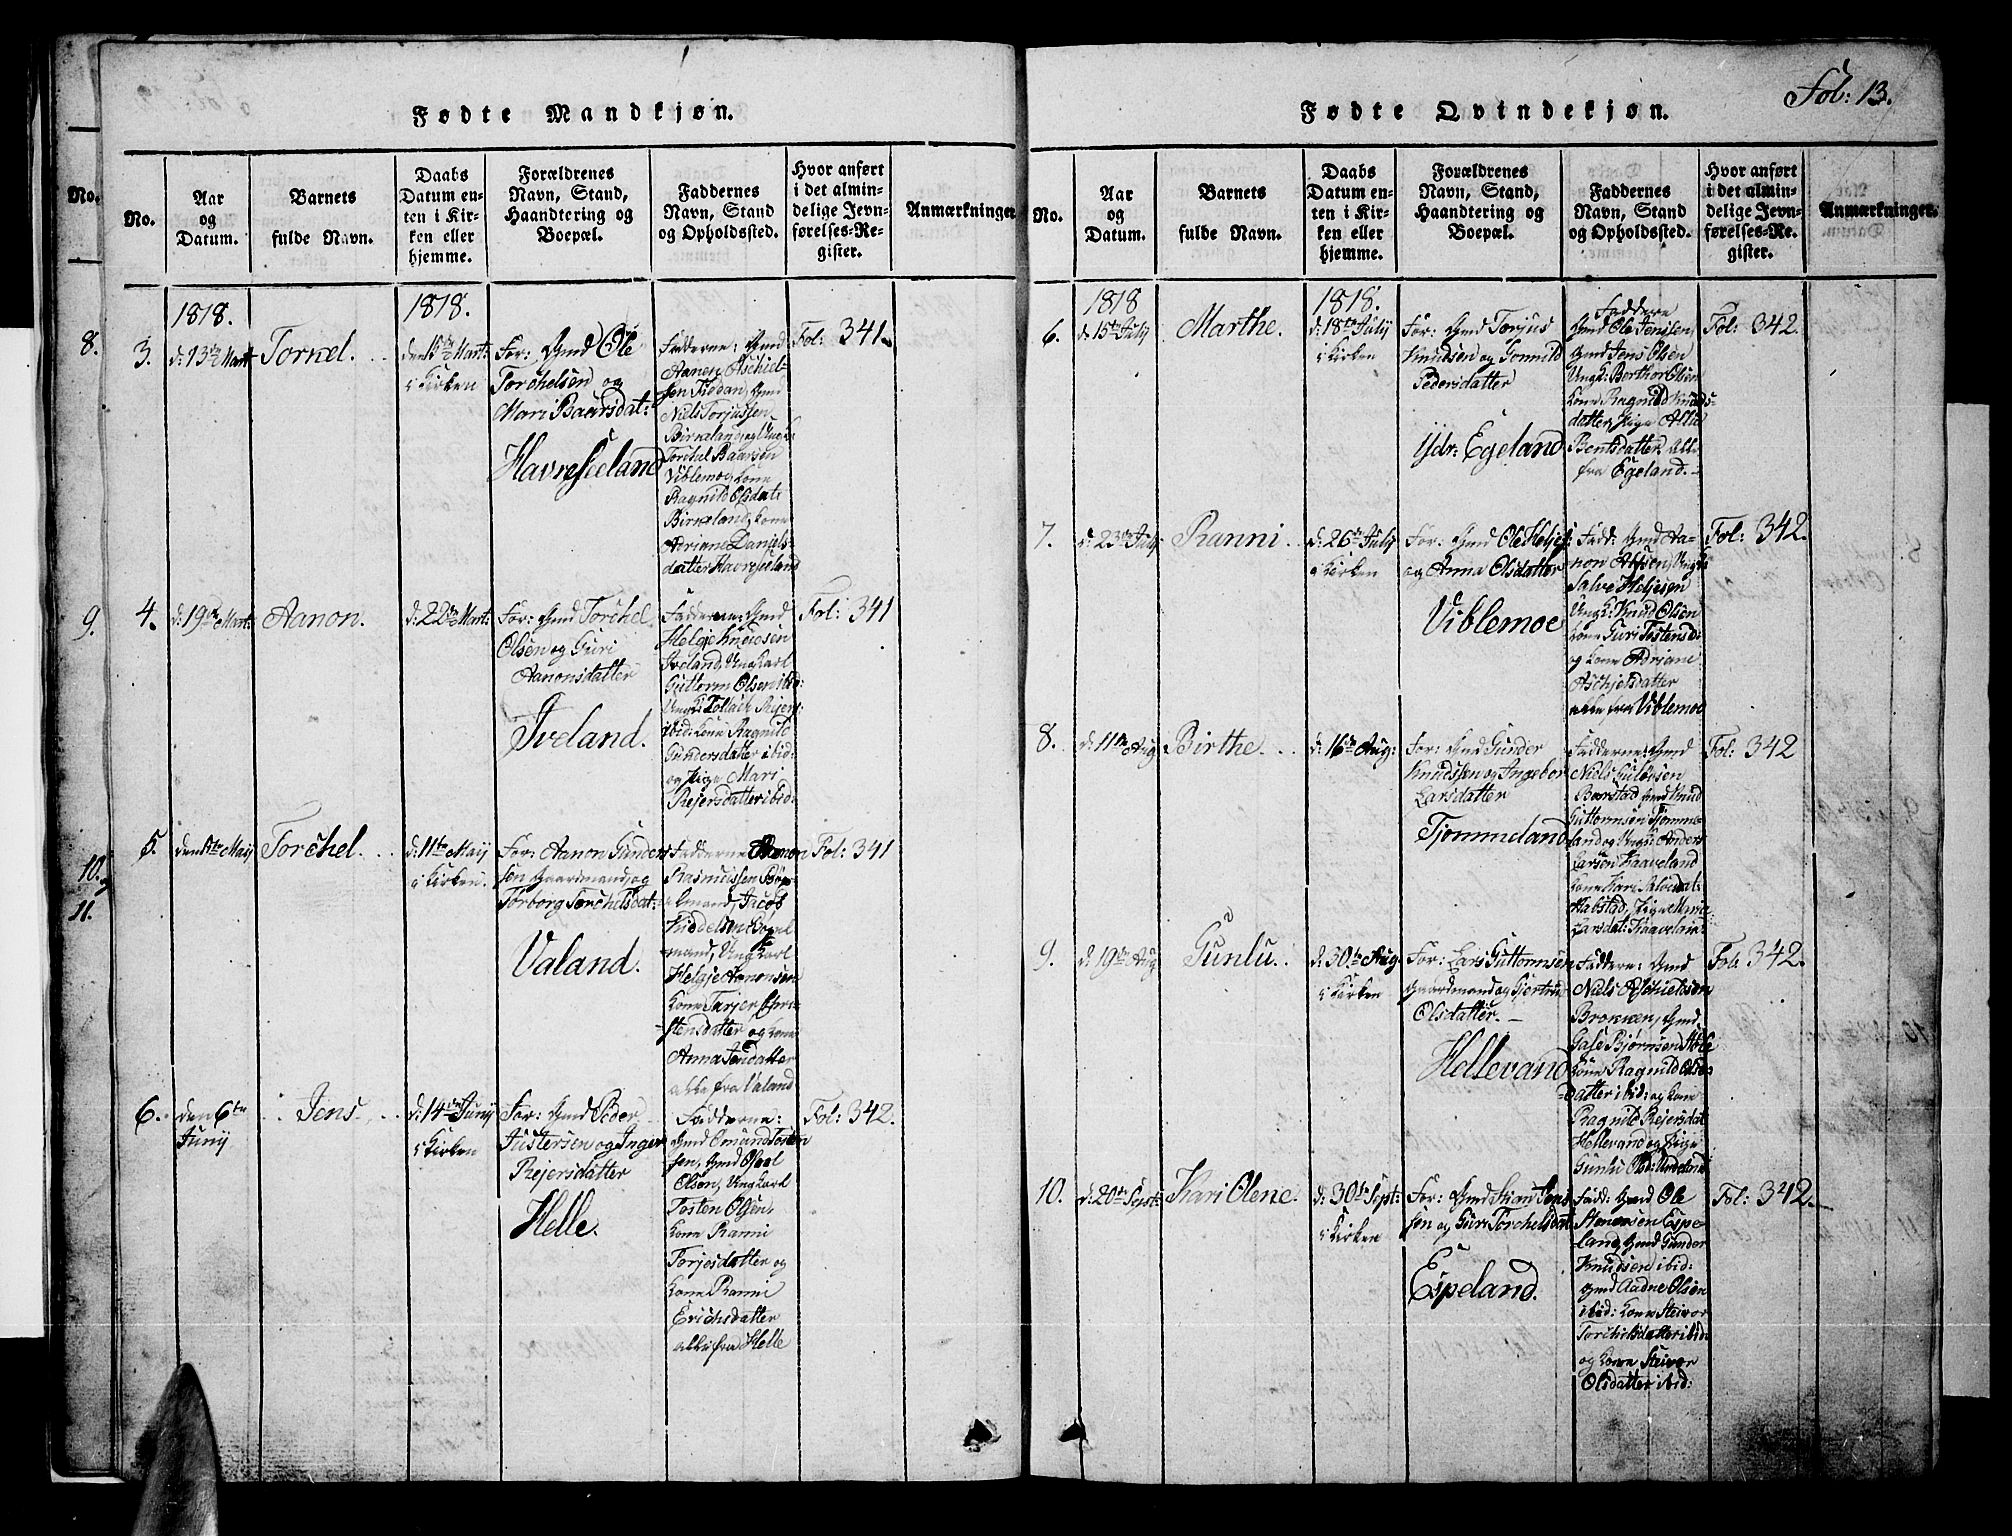 Fol: 13.
Fødte Mandkjøn.
No.
Aar
og
Datum.
Barnets
fulde Navn.
Daabs
Datum en-
ten i Kir-
ken eller
hjemme.
Forældrenes
Navn, Stand,
Haandtering og
Boepæl.
Faddernes
Navn, Stand
og Opholdssted.
Hvor anført
i det almin-
delige Jevn-
førelses-Re-
gister.
Anmærkninger
No.
8.
9.
10.
11.
1818.
1818.
3.
d: 13te Mart
Tornel.
den 15te Mart:
i Kirken
For: Gmd Ole
Torchelsen og
Mari Baarsdat:
Havreseeland
Fadderne: Gmd
Aanen
Niels Torjussen
Birkeland, og Ungk
Torchel Baarsen
Viblemo, Kone
Ragnild Olsdat:
Birkeland, Kone
Adriane Daniels-
datter Havreseeland
Fol: 341.
4.
d: 19de Mart:
Aanon.
d: 22de Mart:
For: Gmd Torchel
Olsen og Guri
Aanonsdatter
Iveland.
Fadderne: Gmd
Helge Knudsen
Iveland, Ungkarl
Guttorm Olsen ibid:
Ungk: Tollack Reiers
ibid: Kone Ragnild
Gundersdatter ibid:
og Pige Mari
Rejersdatter ibid:
Fol: 341
5.
Torchel.
d: 11te Maij
i Kirken.
For: Aanon Gunder
sen Gaardmand, og
Torborg Torchelsdat:
Valand.
Fadderne Aanon
Rasmussen
mand, Jacob
mand, Ungkarl
Helge Aanonsen
Kone Tarjer Chri-
stensdatter og Kone
Anna Jensdatter
alle fra Valand
Fol: 341
6.
den 6te
Junij
Jens
d: 14de Junij
i Kirken
For: Gmd Peder
Justersen og Inger
Rejersdatter
Helle.
Fadderne:
Gmd Omund Tosten
sen, Gmd
Olsen, Ungkarl
Tosten Olsen,
Kone Ranni
Torjesdatter og
Kone Ranni
Erichsdatter
alle fra Helle
Fol: 342.
Fødte Qvindekjøn.
No.
Aar
og
Datum.
Barnets
fulde Navn.
Daabs
Datum en-
ten i Kir-
ken eller
hjemme.
Forældrenes
Navn, Stand,
Haandtering og
Boepæl.
Faddernes
Navn, Stand
og Opholdssted.
Hvor anført
i det almin-
delige Jevn-
førelses-Re-
gister.
Anmærkninger.
1818
1818.
6.
d: 15te July
Marthe.
d: 18te July
i Kirken
For: Gmd Torjus
Knudsen og Gonnild
Pedersdatter
Ydr: Egeland
Faddere
Gmd Ole Jensen,
Gmd Jens Olsen
Ungk: Berthor Olsen
Kone Ragnild Knuds-
datter, Pige
Bentsdatter, alle
fra Egeland.
Fol: 342.
7.
d: 23de July
Ranni
d: 26te July
i Kirken
For: Gmd Ole Heljes:
og Anna Olsdatter
Viblemoe
Fadd: Gmd Aa-
non Ungk
Salve Heljesen
Ungk: Knud Olsen
Kone Guri Tostensd:
og Kone Adriane
Aschjelsdatter
alle fra Viblemoe
Fol: 342.
8.
d: 11te Aug
Birthe.
d: 16de Aug:
For: Gmd Gunder
Knudssen og Ingebor
Larsdatter
Tjommeland
Fadderne: Gmd
Niels
Barstad Gmd Knud
Guttormsen Tjomme-
land og Ungk: Anders
Larsen Kaaveland
Kone Kari Salvesdat:
Habstad, Pige Marie
Larsdat: Kaaveland
Fol: 342
9.
d: 19de Aug
Gunlu.
d: 30te Aug
i Kirken
For: Lars Guttormsen
Gaardmand og Gjertrud
Olsdatter.
Hellevand
Faddere: Gmd
Niels Aschielssen
Brokken, Gmd
Gale Bjørnsen
Kone Ragnild Ols-
datter ibid: og Kone
Ragnild Rejersdat
Hellevand og Pige
Gunlu Olsd:
Fol: 342.
10.
d: 20de Sept:
Kari Olene.
d: 30te Sept:
i Kirken
For: Gmd Jens
sen og Guri Torchelsdat
Espeland.
Fadd: Gmd Ole
Stenersen Espe-
land, Gmd Gunder
Knudsen ibid:
Gmd Aadne Olsen
ibid: Kone Steivor
Torchelsdatter ibid:
og Kone Steivor
Olsdatter ibid:
Fol: 342.